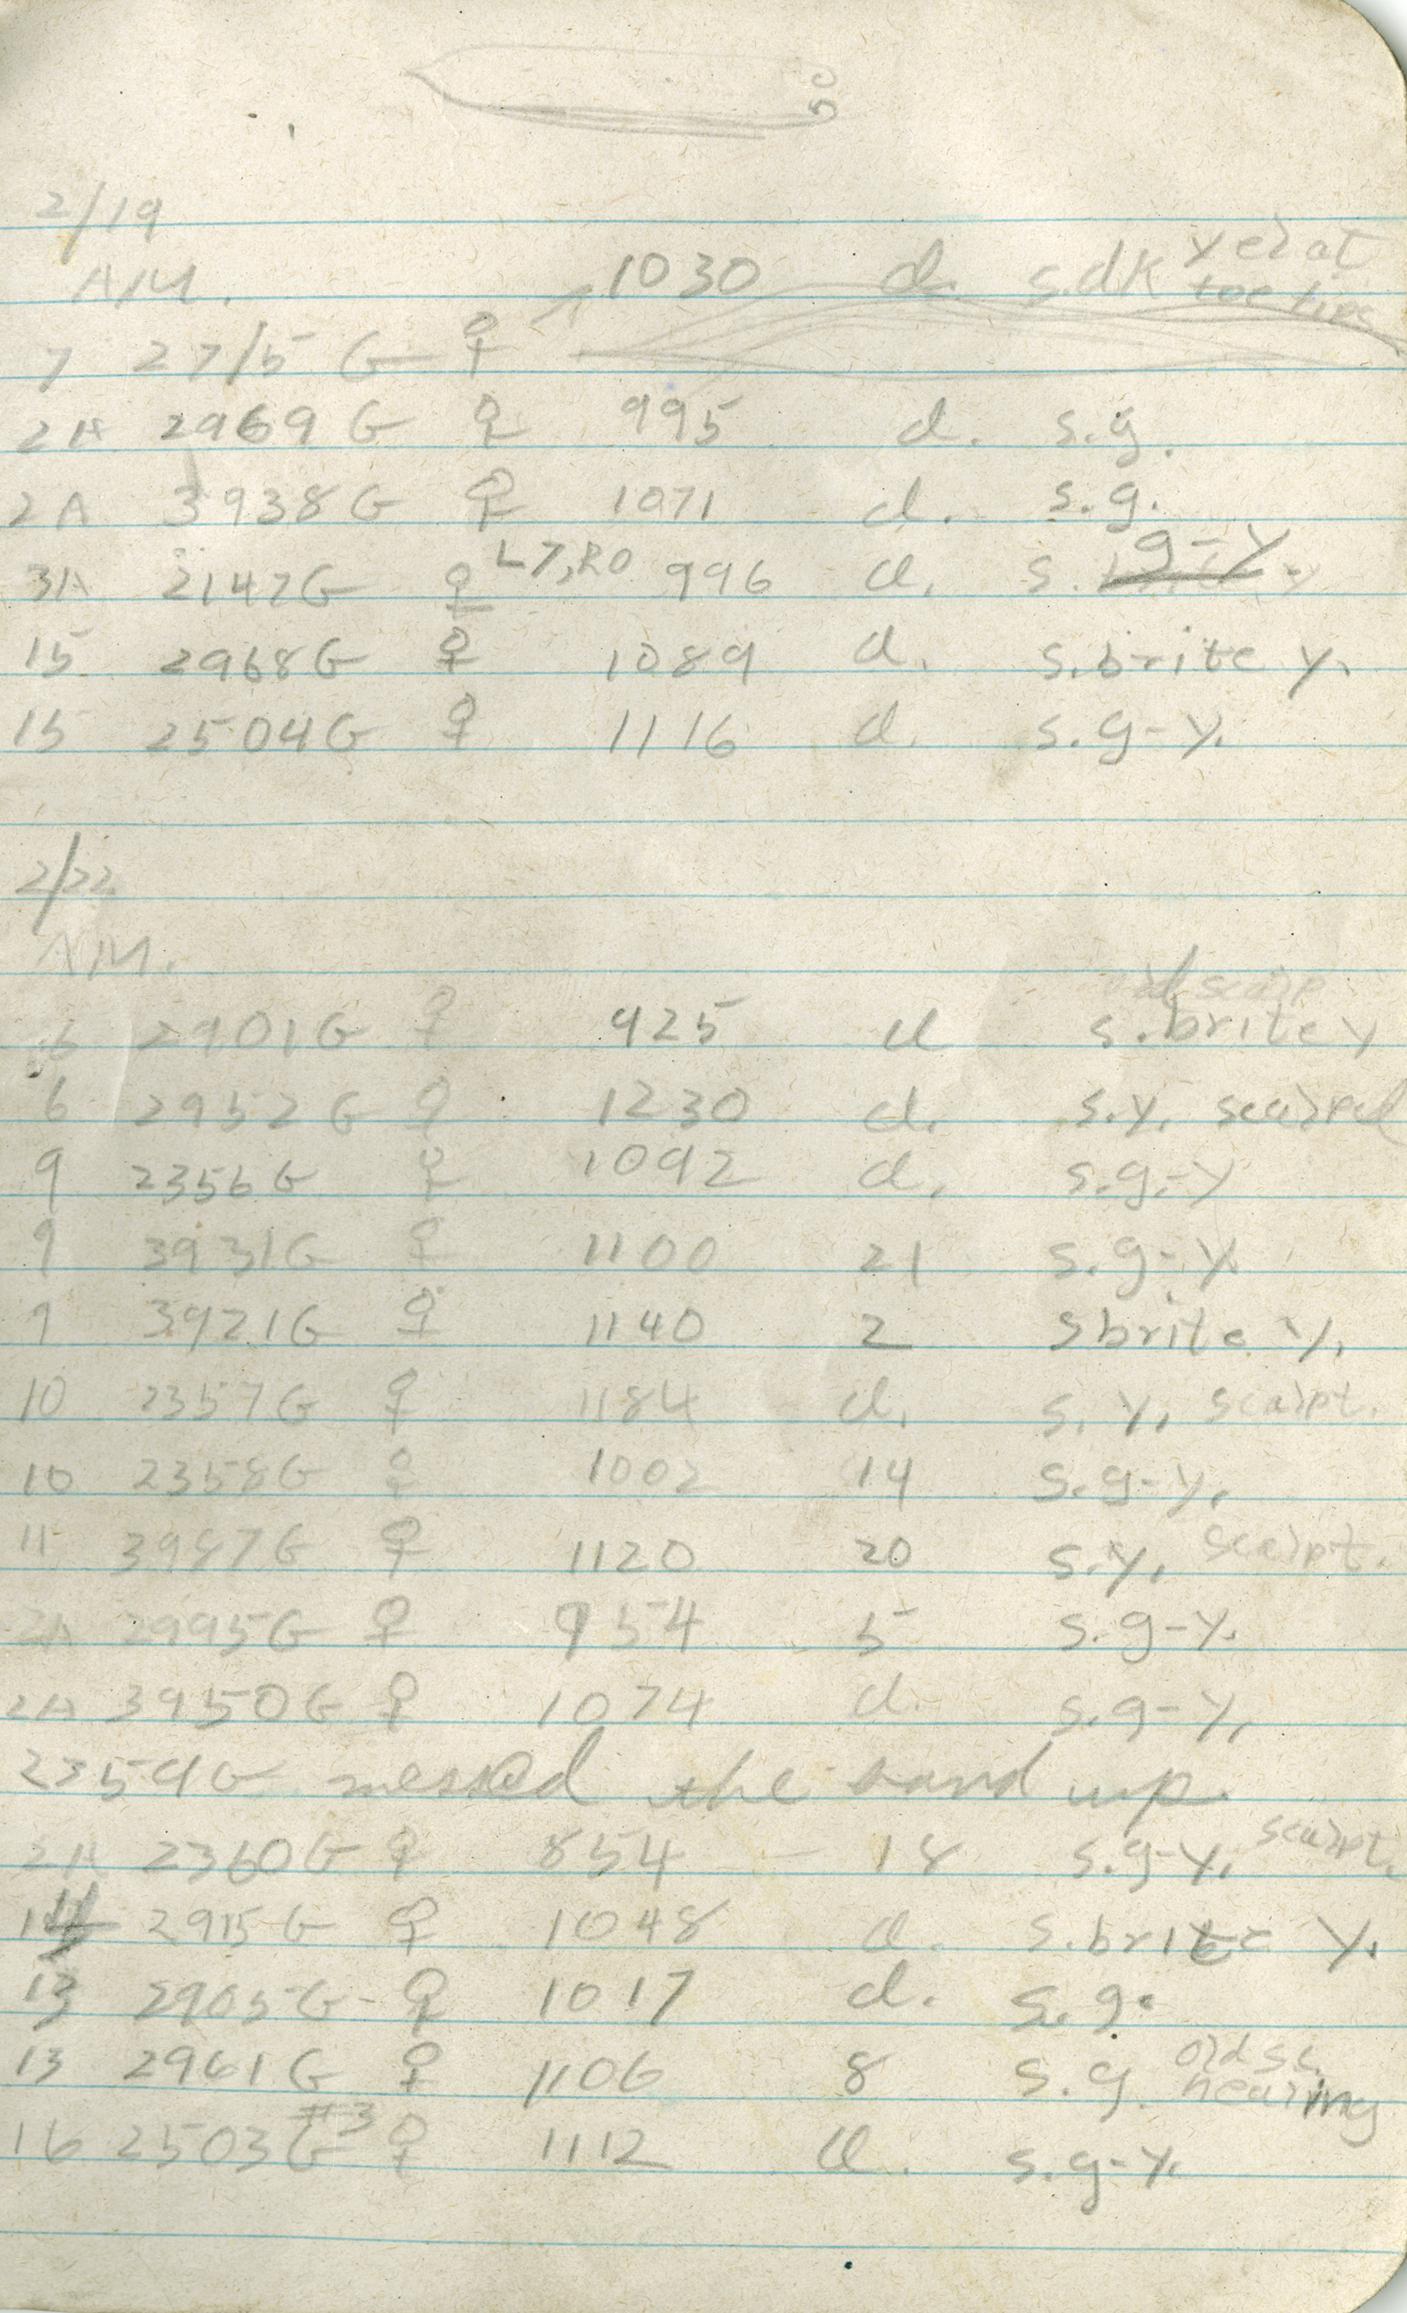 50
2/19
AM.
1030 d. s.dk yel at
toe tips
7 2715 G ♀
2A 2969 G ♀ 995 d. s.g.
2A 3938 G ♀ 1071 d. s.g.
3A 2147 G ♀ L7,R0 996 d. s. g-y
15 2968 G ♀ 1089 d. s.brite y.
15 2504 G ♀ 1116 d. s.g-y.
2/22
AM.
old scalp
6 2901 G ♀ 925 d s.brite y
6 2952 G ♀ 1230 d. s.y. scalped
9 2356 G ♀ 1092 d. s.g.-y
9 3931 G ♀ 1100 21 s.g-y.
9 3921 G ♀ 1140 2 s brite y.
10 2357 G ♀ 1184 d. s.y. scalpt.
10 2358 G ♀ 1002 14 s.g-y.
11 3987 G ♀ 1120 20 s.y. scalpt.
2A 2995 G ♀ 954 5 s.g-y.
2A 3950 G ♀ 1074 d. s.g-y.
2359 G messed the band up.
2A 2360 G ♀ 854 - 18 s.g-y. scalpt.
2915 G ♀ 1048 d. s.brite y.
13 2905 G - ♀ 1017 d. s.g.
13 2961 G ♀ 1106 8 s.g. old sc.
healing
#3
16 2503 G ♀ 1112 d. s.g-y.